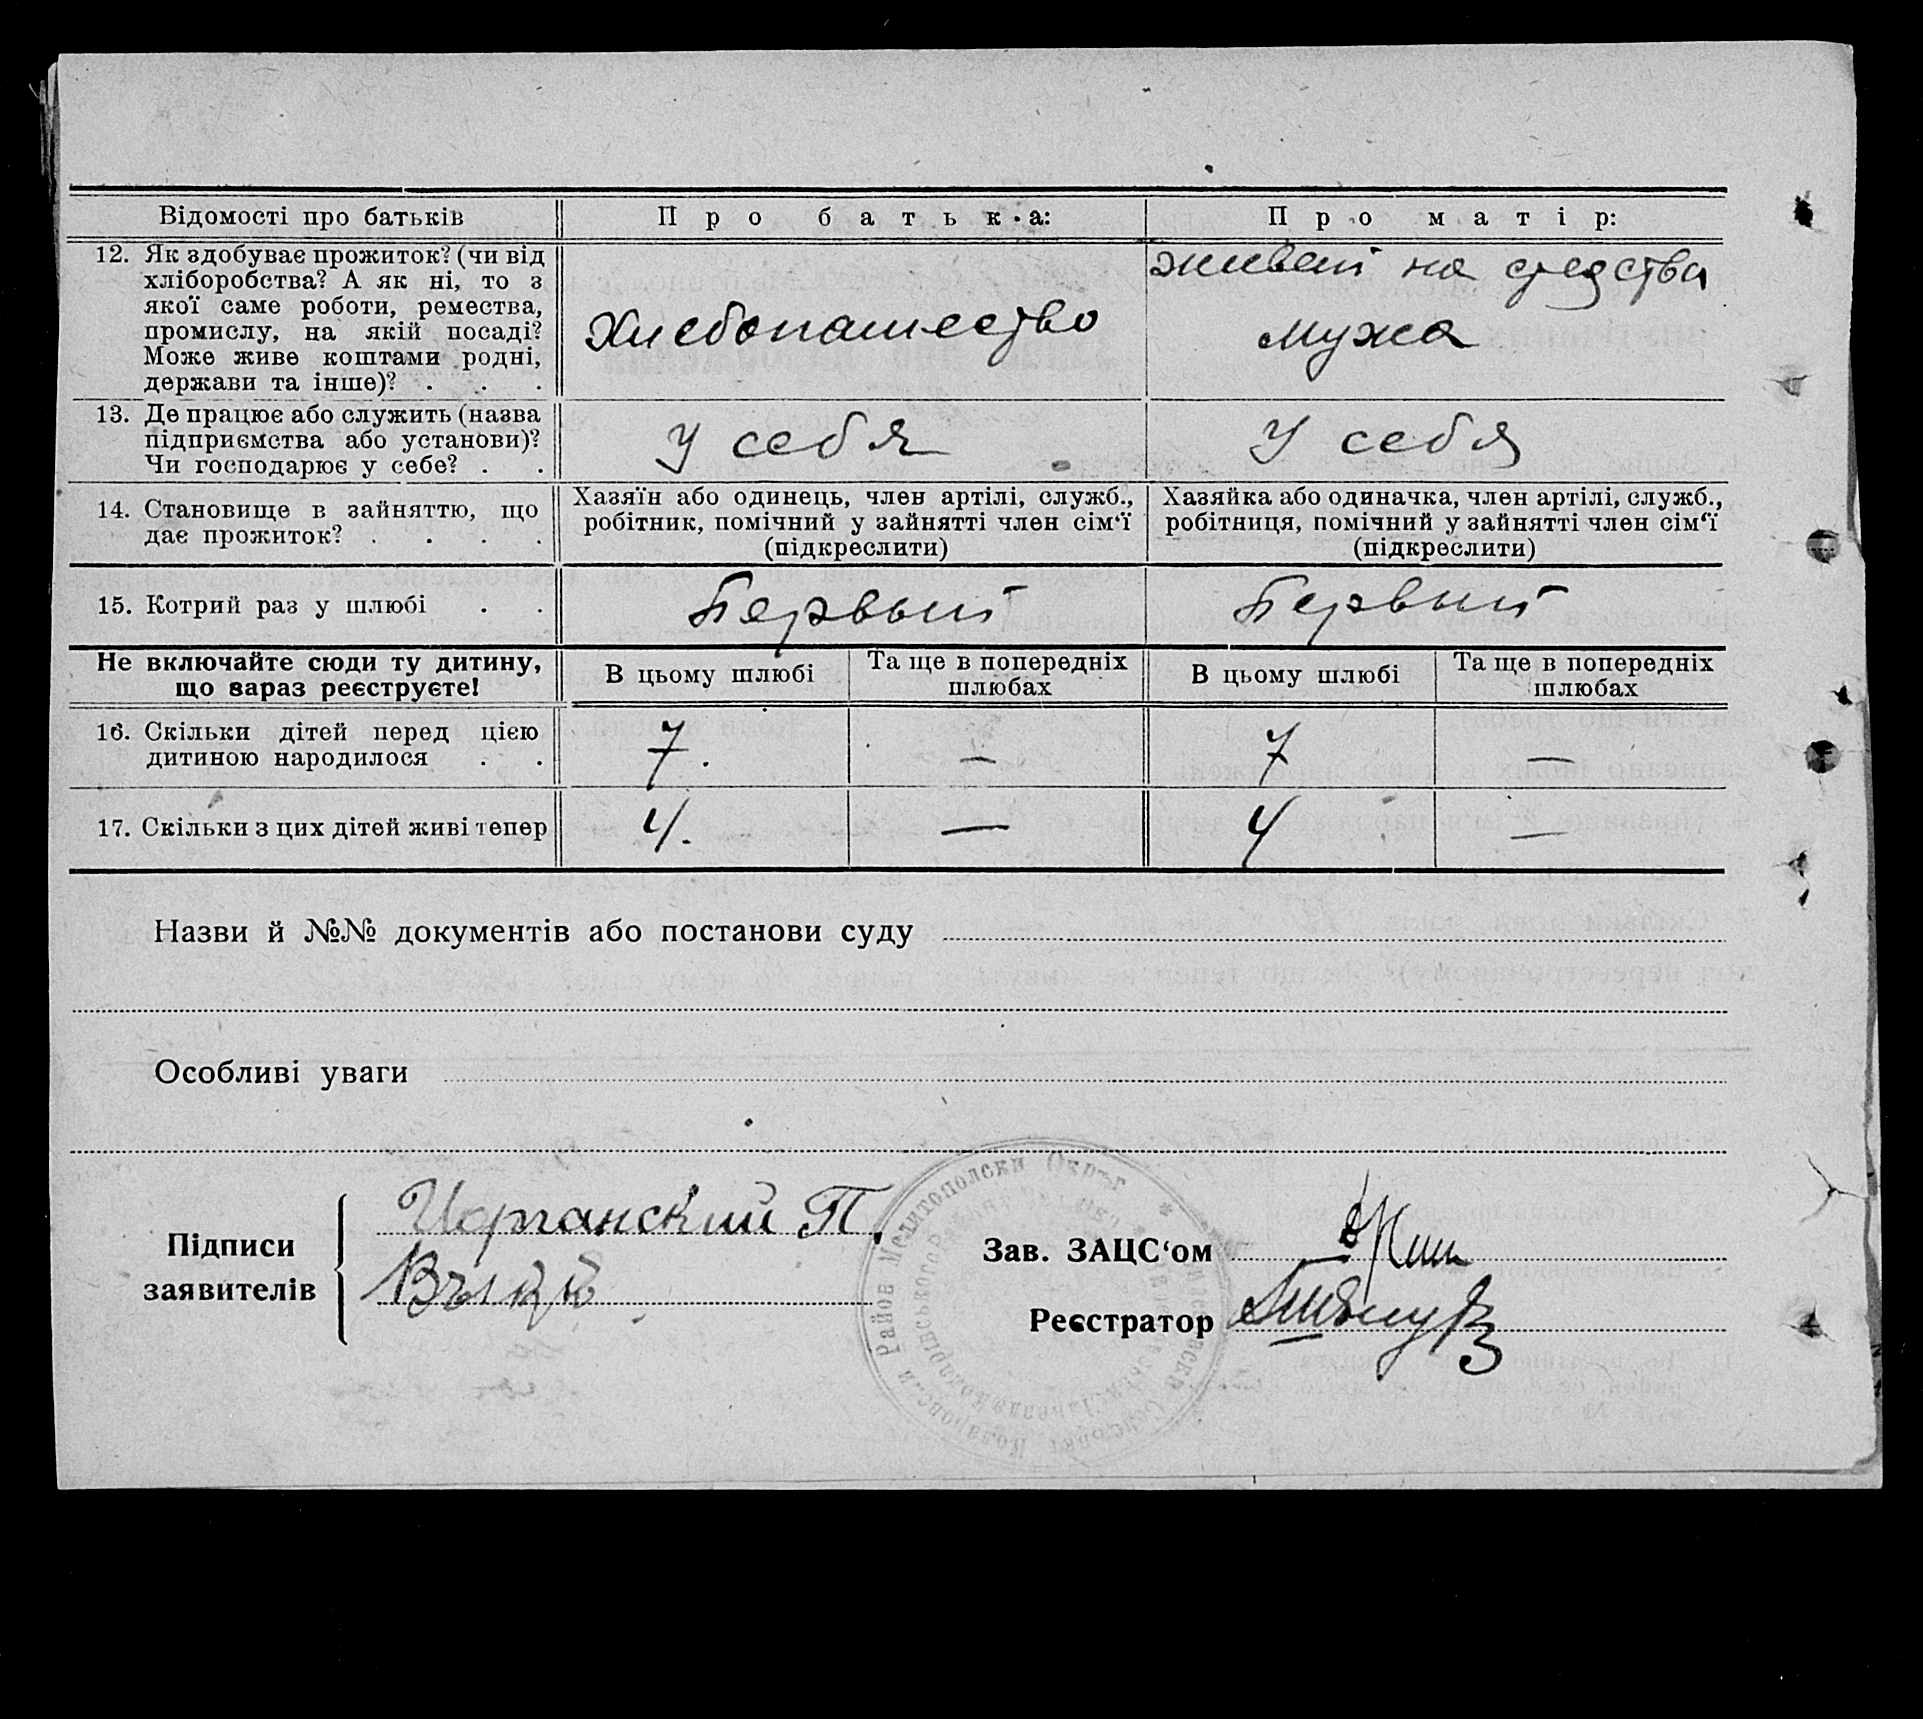 Відомості про батьків
Про батька:
Про матір:
12. Як здобуває прожиток? (чи від
хліборобства? А як ні, то з
якої саме роботи, ремества,
промислу, на якій посаді?
Може живе коштами родні,
держави та інше)? . . .
Хлебопашество
живет на средства
мужа
13. Де працює або служить (назва
підприємства або установи)?
Чи господарює у себе? . .
У себя
У себя
14. Становище в зайняттю, що
дає прожиток? . . . .
Хазяїн або одинець, член артілі, служб.,
робітник, помічний у зайнятті член сім‘ї
(підкреслити)
Хазяйка або одиначка, член артілі, служб.,
робітниця, помічний у зайнятті член сім‘ї
(підкреслити)
15. Котрий раз у шлюбі . .
Первый
Первый
Не включайте сюди ту дитину,
що зараз реєструєте!
В цьому шлюбі
Та ще в попередніх
шлюбах
В цьому шлюбі
Та ще в попередніх
шлюбах
16. Скільки дітей перед цією
дитиною народилося . .
7.
—
7
—
17. Скільки з цих дітей живі тепер
4.
—
4
—
Назви й №№ документів або постанови суду
Особливі уваги
Підписи
заявителів
П.
Зав. ЗАЦС‘ом
Реєстратор
Район Мелитополски Окръг